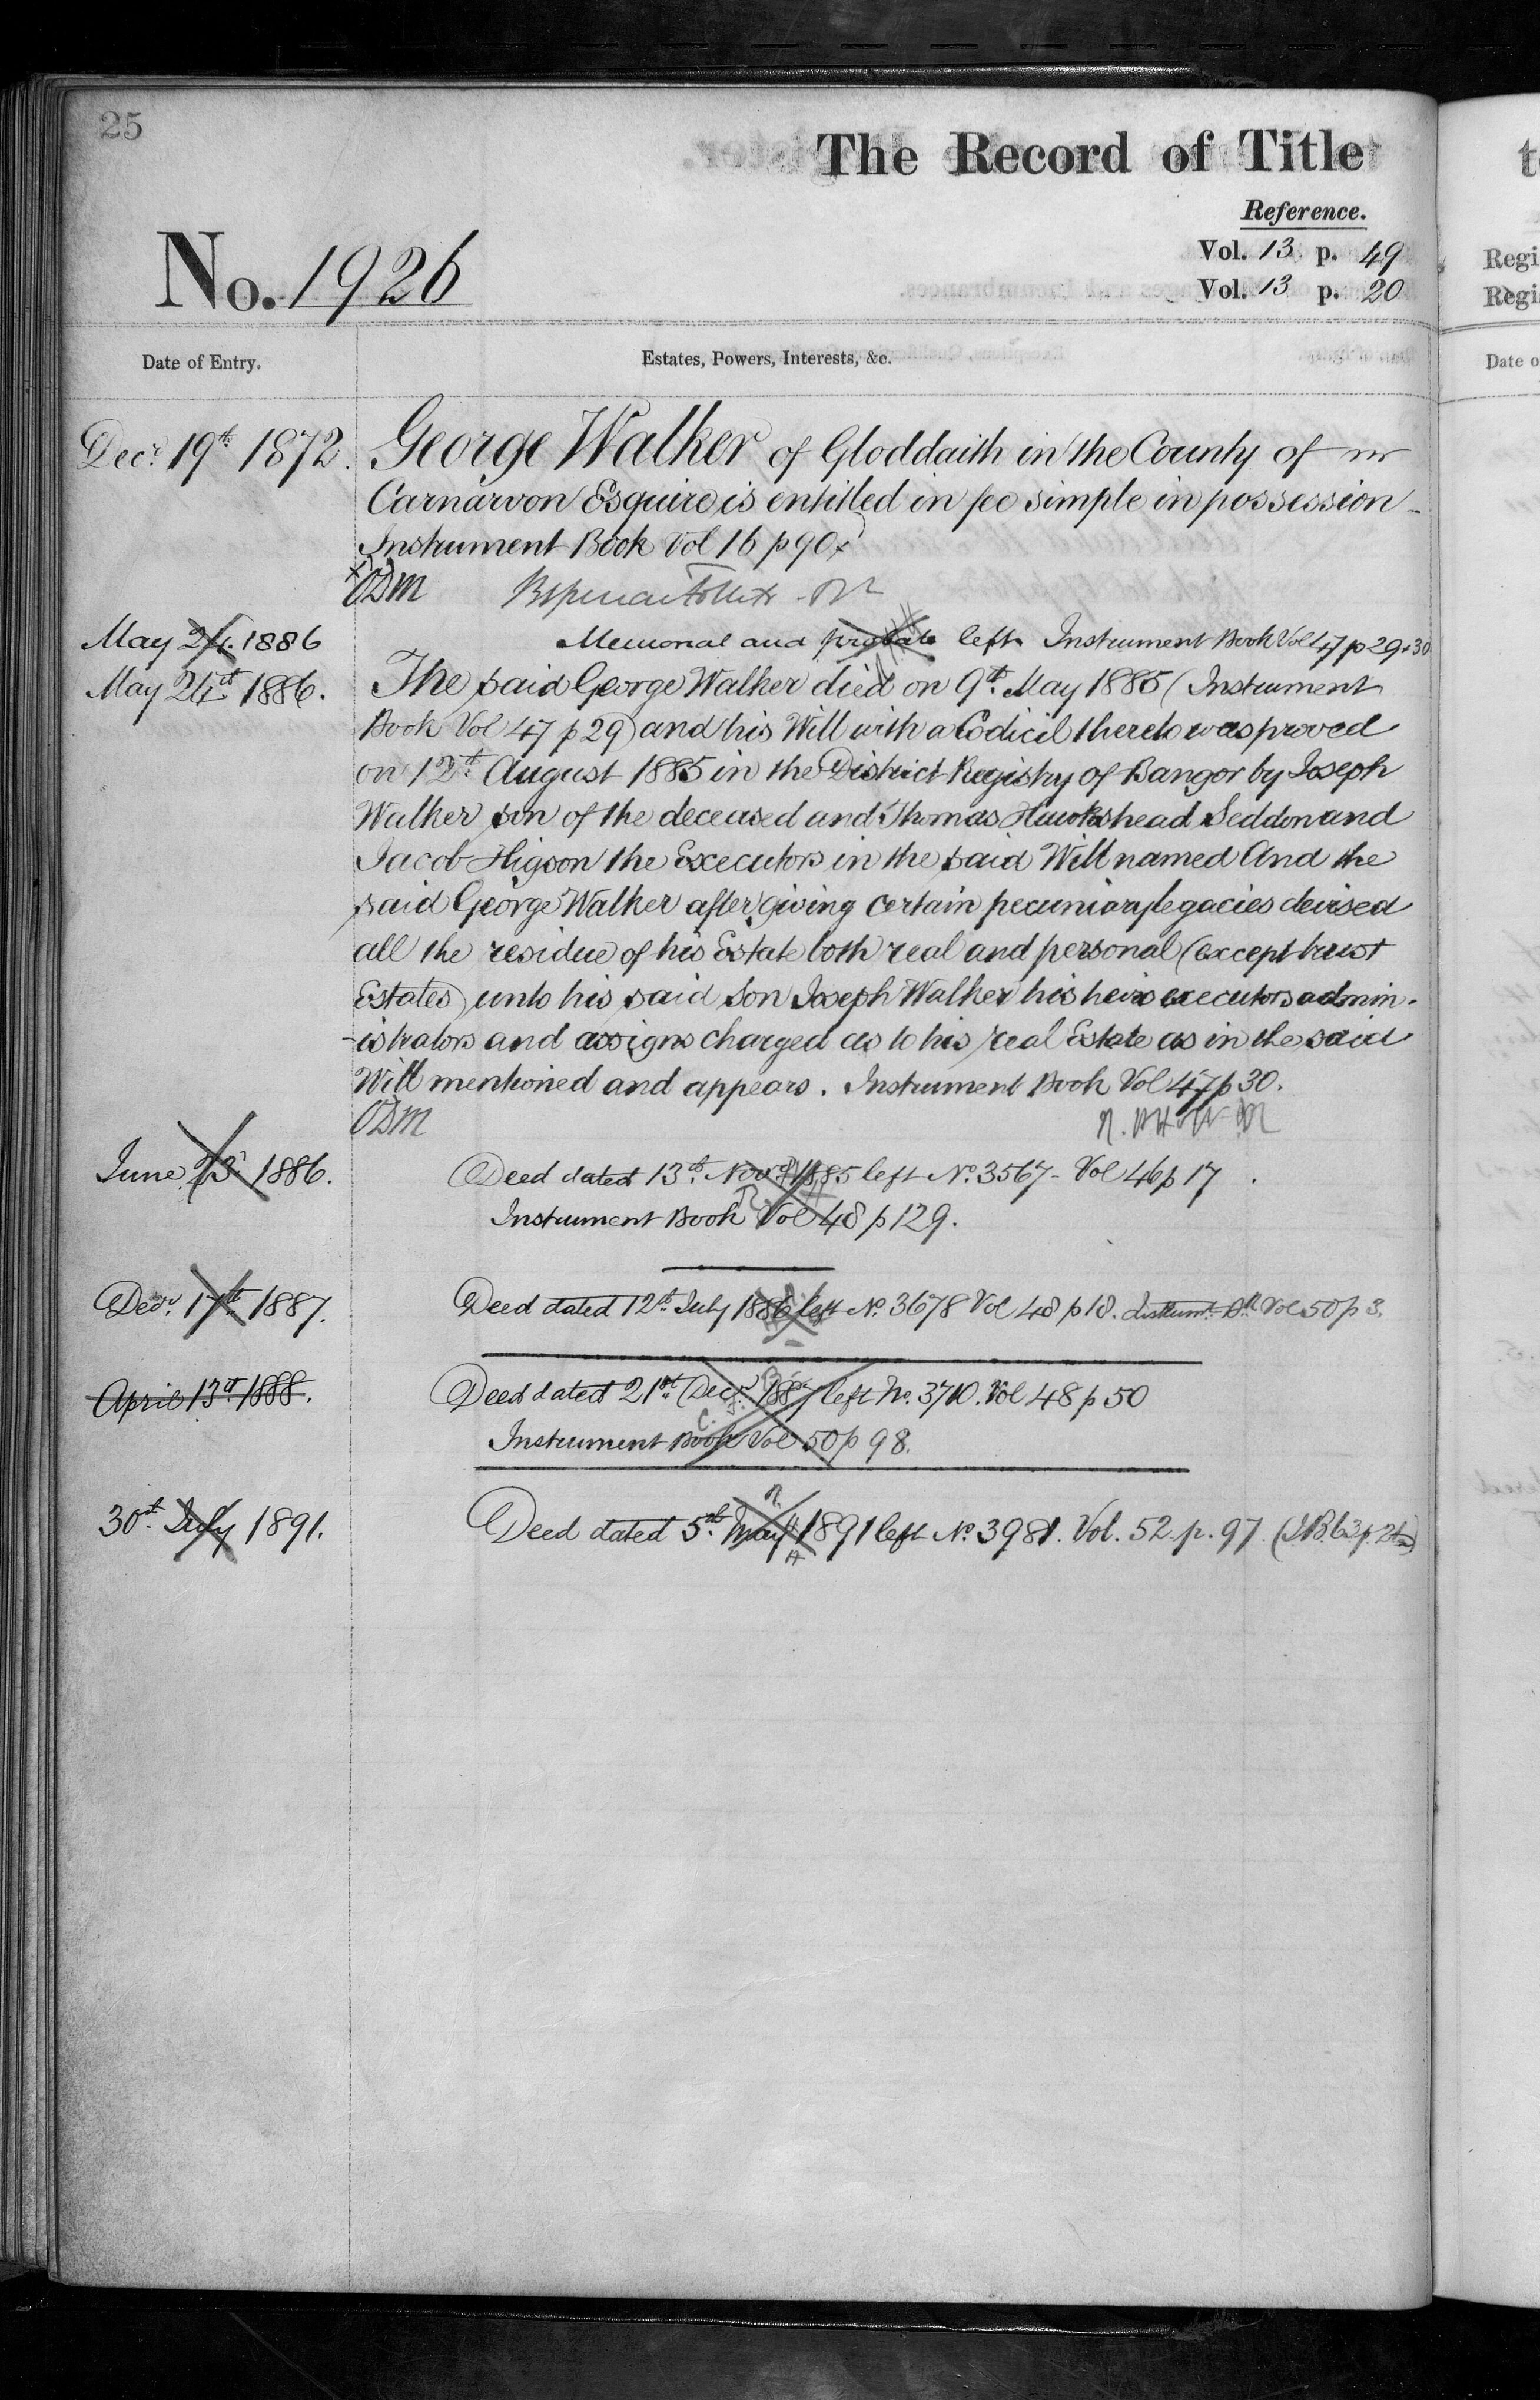 25
The Record of Title
Reference.
Vol. 13 p. 49
Vol. 13 p. 20
No. 1926
Date of Entry.
Estates, Powers, Interests, &c.
Decr. 19th 1872. George Walker of Gloddaith in the County of
Carnarvon Esquire is entitled in fee simple in possession
Instrument Book Vol 16 p 90
ODM
May 24. 1886 Memorial and probate left Instrument Book Vol 47 p 29 & 30
May 24th 1886. The said George Walker died on 9th May 1885 (Instrument
Book Vol 47 p 29) and his Will with a Codicil thereto was proved
on 12th August 1885 in the District Registry of Bangor by Joseph
Walker son of the deceased and Thomas Hawkshead Seddon and
Jacob Higson the Executors in the said Will named And the
said George Walker after giving certain pecuniary legacies devised
all the residue of his Estate both real and personal (except trust
Estates) unto his said Son Joseph Walker his heirs executors admin-
-istrators and assigns charged as to his real Estate as in the said
Will mentioned and appears. Instrument Book Vol 47 p 30.
ODM
June 23 1886. Deed dated 13th Novr 1885 left No. 3567 - Vol 46 p 17
Instrument Book Vol 48 p 129.
Decr. 17th 1887. Deed dated 12th July 1886 left No. 3678 Vol 48 p 18. Instrumt. Bk Vol 50 p 3.
April 13th 1888. Deed dated 21st Decr. 1887 left No. 3710. Vol 48 p 50
Instrument Book Vol 50 p 98.
30th July 1891. Deed dated 5th May 1891 left No. 3981. Vol. 52. p. 97. (I.B. 63 p.
Regi
Regi
Date o